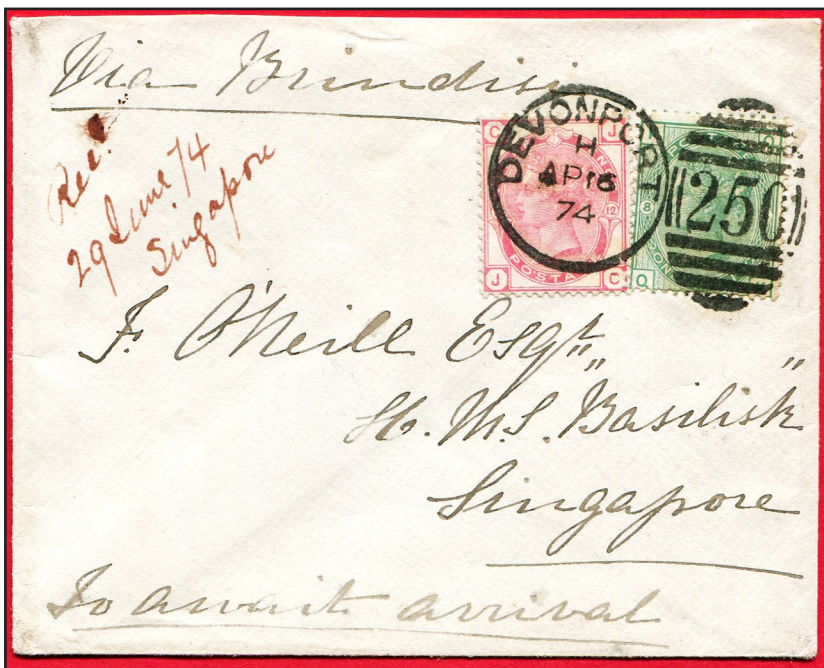 Via Brindisi
Rec.
29 June 74
Singapore
DEVONPORT
H
AP 16
74
250
C J
12
J C
POSTA
8
Q
F. O'Neill Esqr,,
H. M. S. Basilisk
Singapore
To await arrival